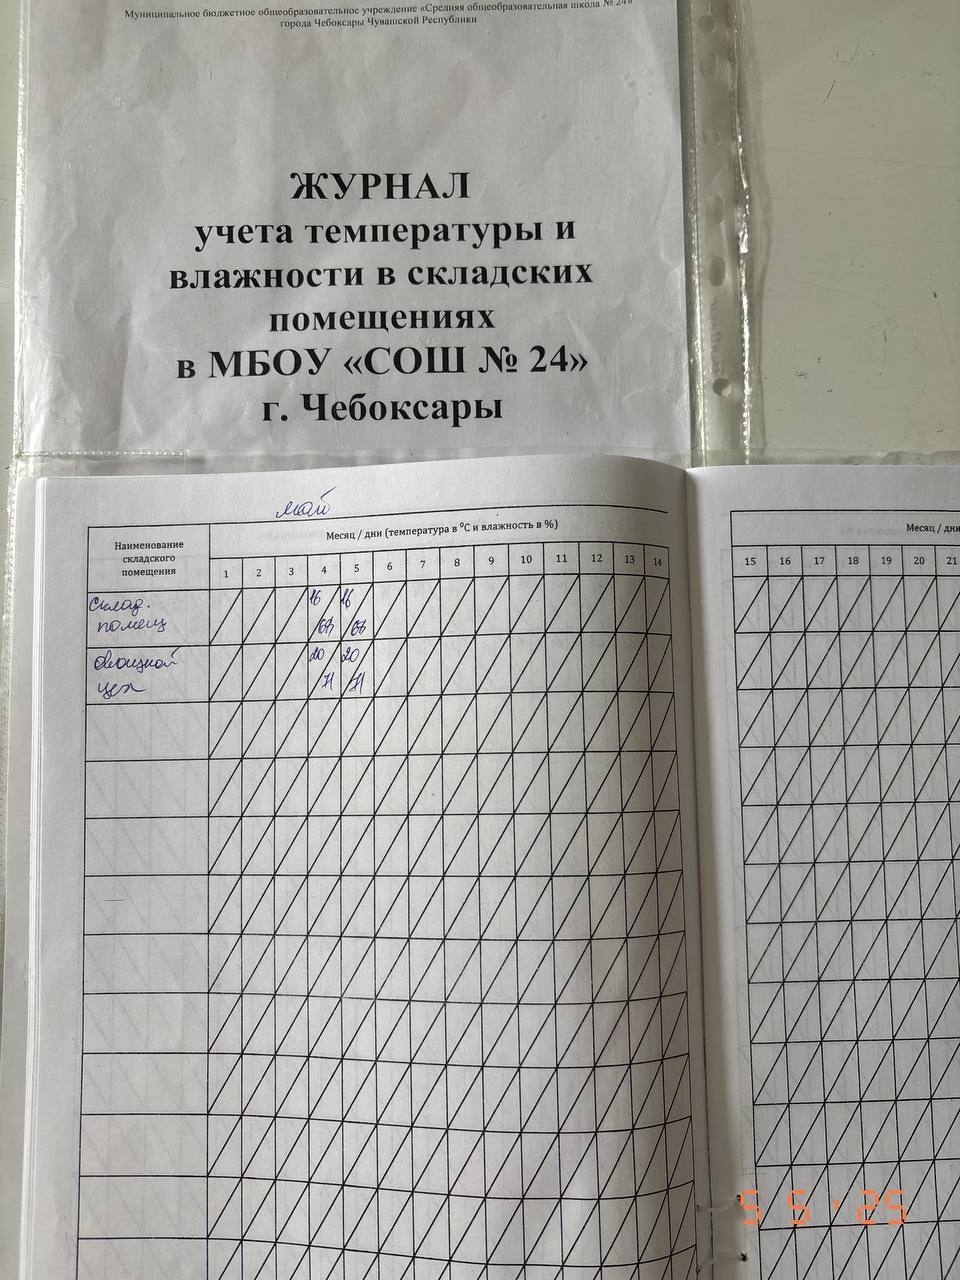 Муниципальное бюджетное общеобразовательное учреждение «Средняя общеобразовательная школа № 24»
города Чебоксары Чувашской Республики
ЖУРНАЛ
учета температуры и
влажности в складских
помещениях
в МБОУ «СОШ № 24»
г. Чебоксары
май
Наименование
складского
помещения
Месяц / дни (температура в ⁰С и влажность в %)
1 2 3 4 5 6 7 8 9 10 11 12 13 14
Склад.
помещ
16 16
68 68
Овощной
цех
20 20
71 71
Месяц / дни
15 16 17 18 19 20 21
5 5 '25